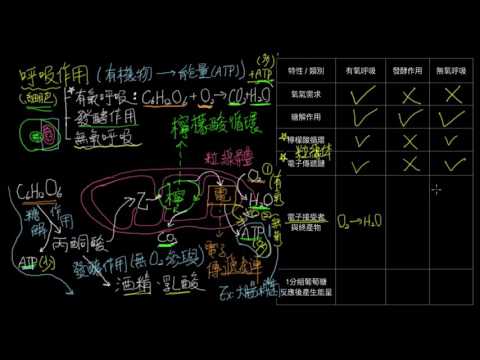 呼吸作用 (有機物 → 能量(ATP))
(細胞) ★有氧呼吸: C6H12O6 + O2 → CO2 + H2O + ATP (多)
發酵作用
無氧呼吸
檸檬酸循環
粒線體
C6H12O6
糖解作用
丙酮酸
ATP(少)
乙 檸 電
CO2
O2 ①
H2O
ATP
(多)
(有氧)
(無氧)
電子傳遞鏈
發酵作用 (無O2參與)
酒精 乳酸
特性 / 類別 有氧呼吸 發酵作用 無氧呼吸
氧氣需求 ✓ × ×
糖解作用 ✓ ✓ ✓
★檸檬酸循環 ✓ × ✓
粒線體
★電子傳遞鏈 ✓ × ✓
電子接受者 與終產物 O2→H2O
1分組葡萄糖
反應後產生能量